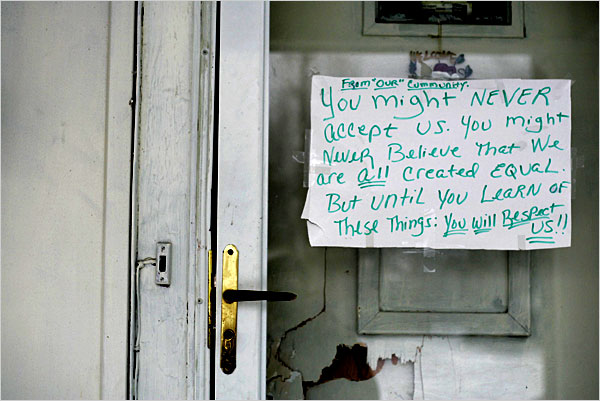 WELCOME
From "OUR" Community.
You might NEVER
accept us. You might
Never Believe That We
are all created EQUAL.
But until You Learn of
These Things: You Will Respect
US!!